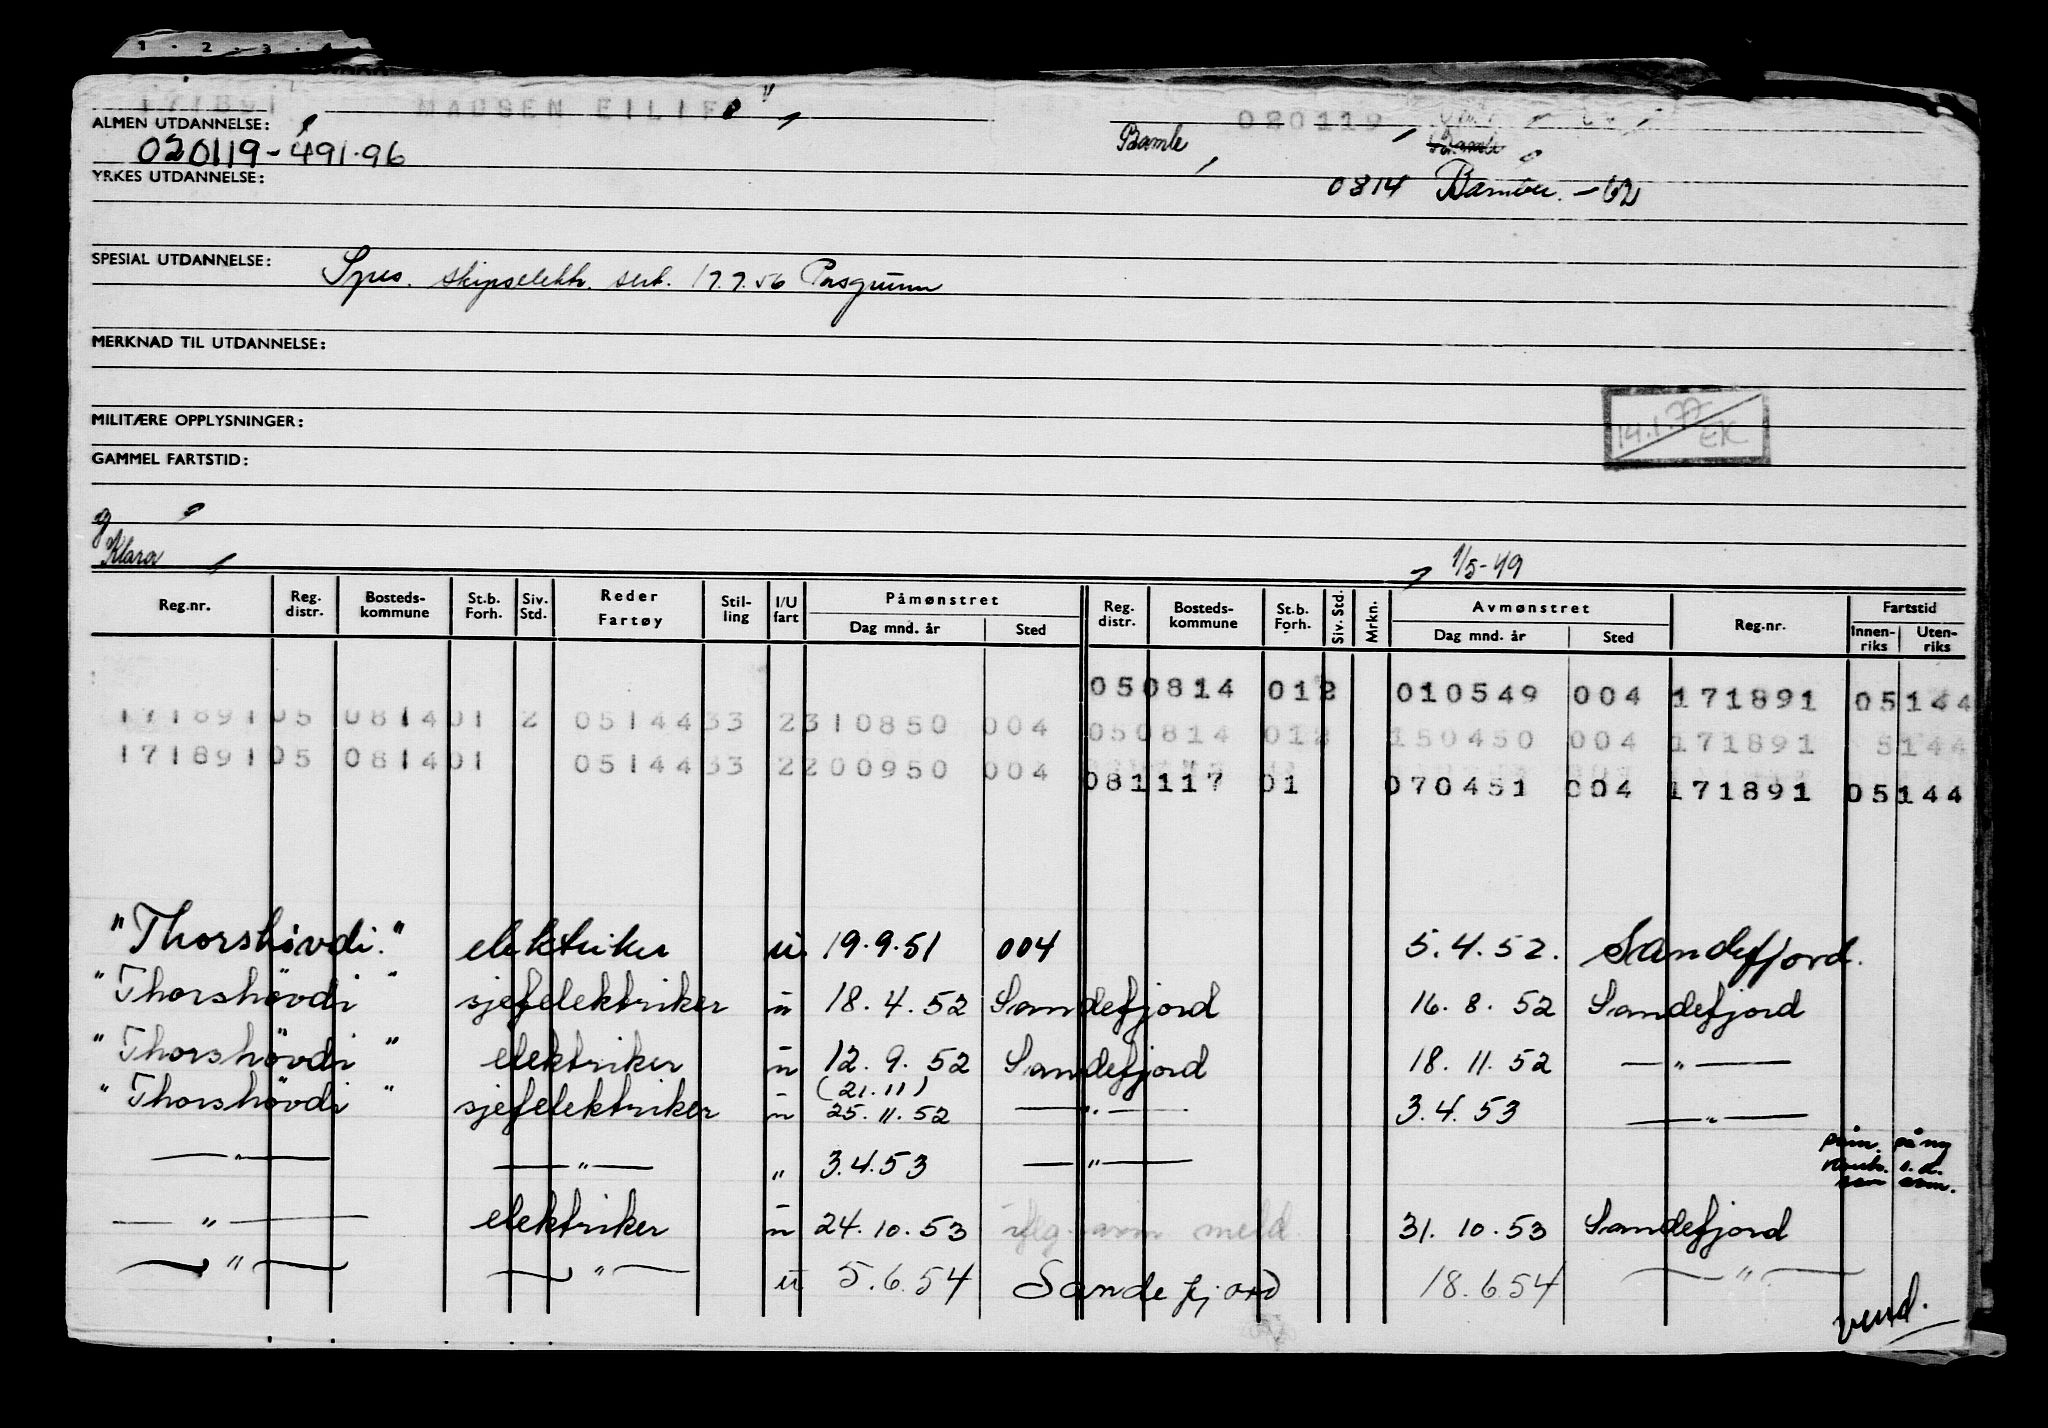 171891 MADSEN EILIF 020119
ALMEN UTDANNELSE:
020119-491.96 Bamle Bamle
YRKES UTDANNELSE: 0814 -62
SPESIAL UTDANNELSE: Spes. skipselektr. sert. 17.7.56 Porsgrunn
MERKNAD TIL UTDANNELSE:
MILITÆRE OPPLYSNINGER: 14.1.77 EK
GAMMEL FARTSTID:
g
Klara 1/5-49
Reg.nr. Reg. distr. Bosteds-kommune St.b. Forh. Siv. Std. Reder Fartøy Stil-ling I/U fart Påmønstret Dag mnd. år Sted Reg. distr. Bosteds-kommune St.b. Forh. Siv. Std. Mrkn. Avmønstret Dag mnd. år Sted Reg.nr. Fartstid Innen-riks Uten-riks
050814 012 010549 004 171891 05144
17189105 081401 2 0514433 2310850 004 050814 012 150450 004 171891 5144
17189105 081401 0514433 2200950 004 081117 01 070451 004 171891 05144
"Thorshøvdi." elektriker u. 19.9.51 004 5.4.52. Sandefjord.
"Thorshøvdi" sjefelektriker u 18.4.52 Sandefjord 16.8.52 Sandefjord
"Thorshøvdi" elektriker u 12.9.52 Sandefjord 18.11.52 —"—
(21.11)
"Thorshøvdi" sjefelektriker u 25.11.52 —"— 3.4.53 —"—
—"— —"— " 3.4.53 —"— på ny
—"— elektriker u 24.10.53 meld. 31.10.53 Sandefjord
—"— —"— u 5.6.54 Sandefjord 18.6.54 —"—
vend.